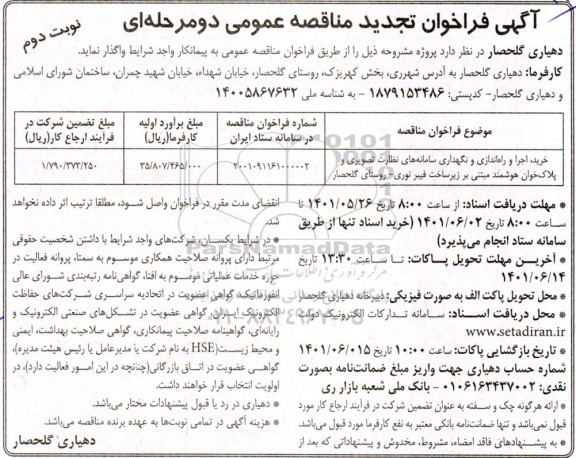 آگهی فراخوان تجدید مناقصه عمومی دومرحله‌ای
نوبت دوم
دهیاری گلحصار در نظر دارد پروژه مشروحه ذیل را از طریق فراخوان مناقصه عمومی به پیمانکار واجد شرایط واگذار نماید.
کارفرما: دهیاری گلحصار به آدرس شهرری، بخش کهریزک، روستای گلحصار، خیابان شهداء، خیابان شهید چمران، ساختمان شورای اسلامی
و دهیاری گلحصار- کدپستی: ۱۸۷۹۱۵۳۴۸۶ - به شناسه ملی ۱۴۰۰۵۸۶۷۶۳۲
موضوع فراخوان مناقصه
شماره فراخوان مناقصه در سامانه ستاد ایران
مبلغ برآورد اولیه کارفرما(ریال)
مبلغ تضمین شرکت در فرآیند ارجاع کار(ریال)
خرید، اجرا و راه‌اندازی و نگهداری سامانه‌های نظارت تصویری و
پلاک‌خوان هوشمند مبتنی بر زیرساخت فیبر نوری- روستای گلحصار
۲۰۰۱۰۹۱۱۶۱۰۰۰۰۰۲
۳۵/۸۰۷/۴۶۵/۰۰۰
۱/۷۹۰/۳۷۳/۲۵۰
* مهلت دریافت اسناد: از ساعت ۸:۰۰ تاریخ ۱۴۰۱/۰۵/۲۶ تا
ساعت ۸:۰۰ تاریخ ۱۴۰۱/۰۶/۰۲ (خرید اسناد تنها از طریق
سامانه ستاد انجام می‌پذیرد)
* آخرین مهلت تحویل پاکات: تا ساعت ۱۳:۳۰ تاریخ
۱۴۰۱/۰۶/۱۴
* محل تحویل پاکت الف به صورت فیزیکی: دبیرخانه دهیاری گلحصار
* محل دریافت اسناد: سامانه تدارکات الکترونیک دولت
www.setadiran.ir
* تاریخ بازگشایی پاکات: ساعت ۱۰:۰۰ تاریخ ۱۴۰۱/۰۶/۰۱۵
شماره حساب دهیاری جهت واریز مبلغ ضمانت‌نامه بصورت
نقدی: ۰۱۰۶۱۶۳۴۳۷۰۰۲ - بانک ملی شعبه بازار ری
* ارائه هرگونه چک و سفته به عنوان تضمین شرکت در فرآیند ارجاع کار مورد
قبول نمی‌باشد و تنها ضمانت‌نامه بانکی معتبر به نفع کارفرما مورد قبول می‌باشد.
* به پیشنهادهای فاقد امضاء، مشروط، مخدوش و پیشنهاداتی که بعد از
انقضای مدت مقرر در فراخوان واصل شود، مطلقا ترتیب اثر داده نخواهد
شد.
* در شرایط یکسان، شرکت‌های واجد شرایط با داشتن شخصیت حقوقی
مرتبط دارای پروانه صلاحیت همکاری موسوم به سمتا، پروانه فعالیت در
حوزه خدمات عملیاتی موسوم به افتا، گواهی‌نامه رتبه‌بندی شورای عالی
انفورماتیک، گواهی عضویت در اتحادیه سراسری شرکت‌های حفاظت
الکترونیک ایران، گواهی عضویت در تشکل‌های صنعتی الکترونیک و
رایانه‌ای، گواهینامه صلاحیت پیمانکاری، گواهی صلاحیت بهداشت، ایمنی
و محیط زیست(HSE به نام شرکت یا مدیرعامل یا رئیس هیئت مدیره)،
گواهی عضویت در اتاق بازرگانی(چنانچه در این امور فعالیت دارد)، در
اولویت انتخاب قرار خواهند داشت.
* دهیاری در رد یا قبول پیشنهادات مختار می‌باشد.
* هزینه آگهی در تمامی نوبت‌ها به عهده برنده مناقصه می‌باشد.
دهیاری گلحصار
ParsNamadData